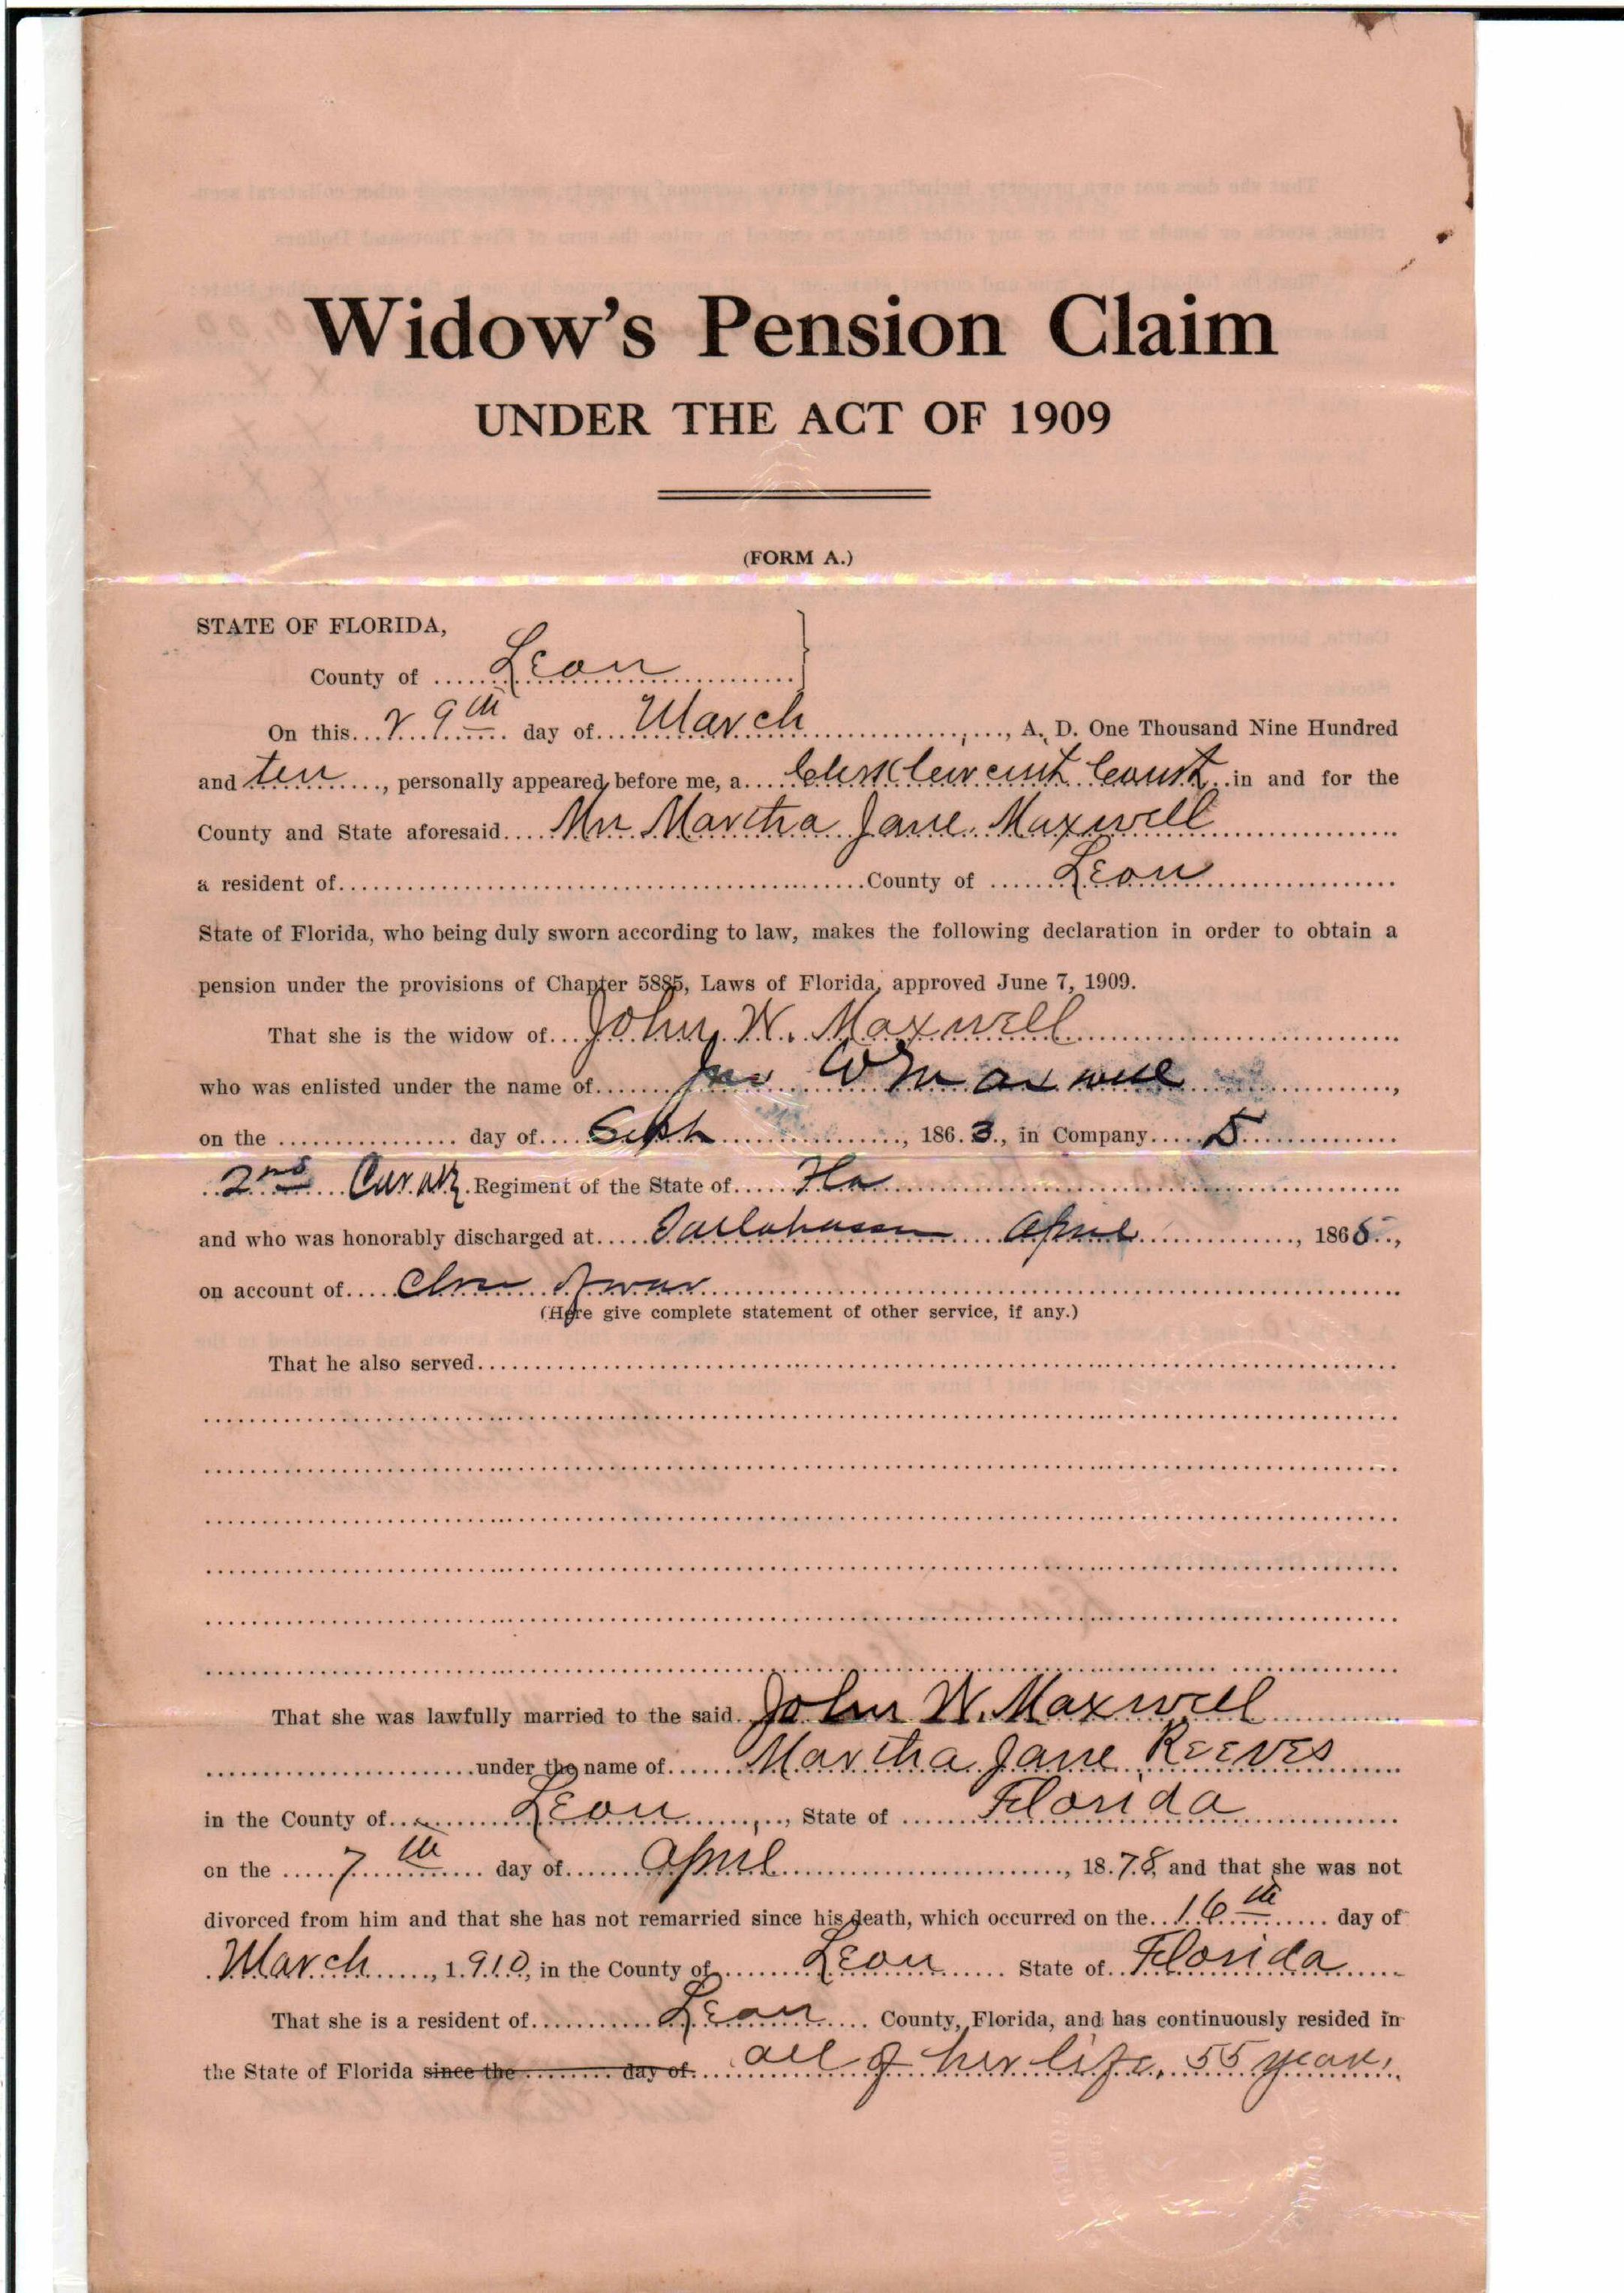 Widow's Pension Claim
UNDER THE ACT OF 1909
(FORM A.)
STATE OF FLORIDA,
County of Leon
On this 29th day of March, A. D. One Thousand Nine Hundred
and ten, personally appeared before me, a Clerk Circuit Court in and for the
County and State aforesaid Mrs Martha Jane Maxwell
a resident of County of Leon
State of Florida, who being duly sworn according to law, makes the following declaration in order to obtain a
pension under the provisions of Chapter 5885, Laws of Florida, approved June 7, 1909.
That she is the widow of John W. Maxwell
who was enlisted under the name of Jno W Maxwell,
on the day of Sept, 1863, in Company
2nd Cavalry Regiment of the State of Fla
and who was honorably discharged at Tallahassee April, 1865,
on account of Close of war
(Here give complete statement of other service, if any.)
That he also served
That she was lawfully married to the said John W. Maxwell
under the name of Martha Jane Reeves
in the County of Leon, State of Florida
on the 7th day of April, 1878, and that she was not
divorced from him and that she has not remarried since his death, which occurred on the 16th day of
March, 1910, in the County of Leon State of Florida
That she is a resident of Leon County, Florida, and has continuously resided in
the State of Florida since the day of all of her life, 55 years.